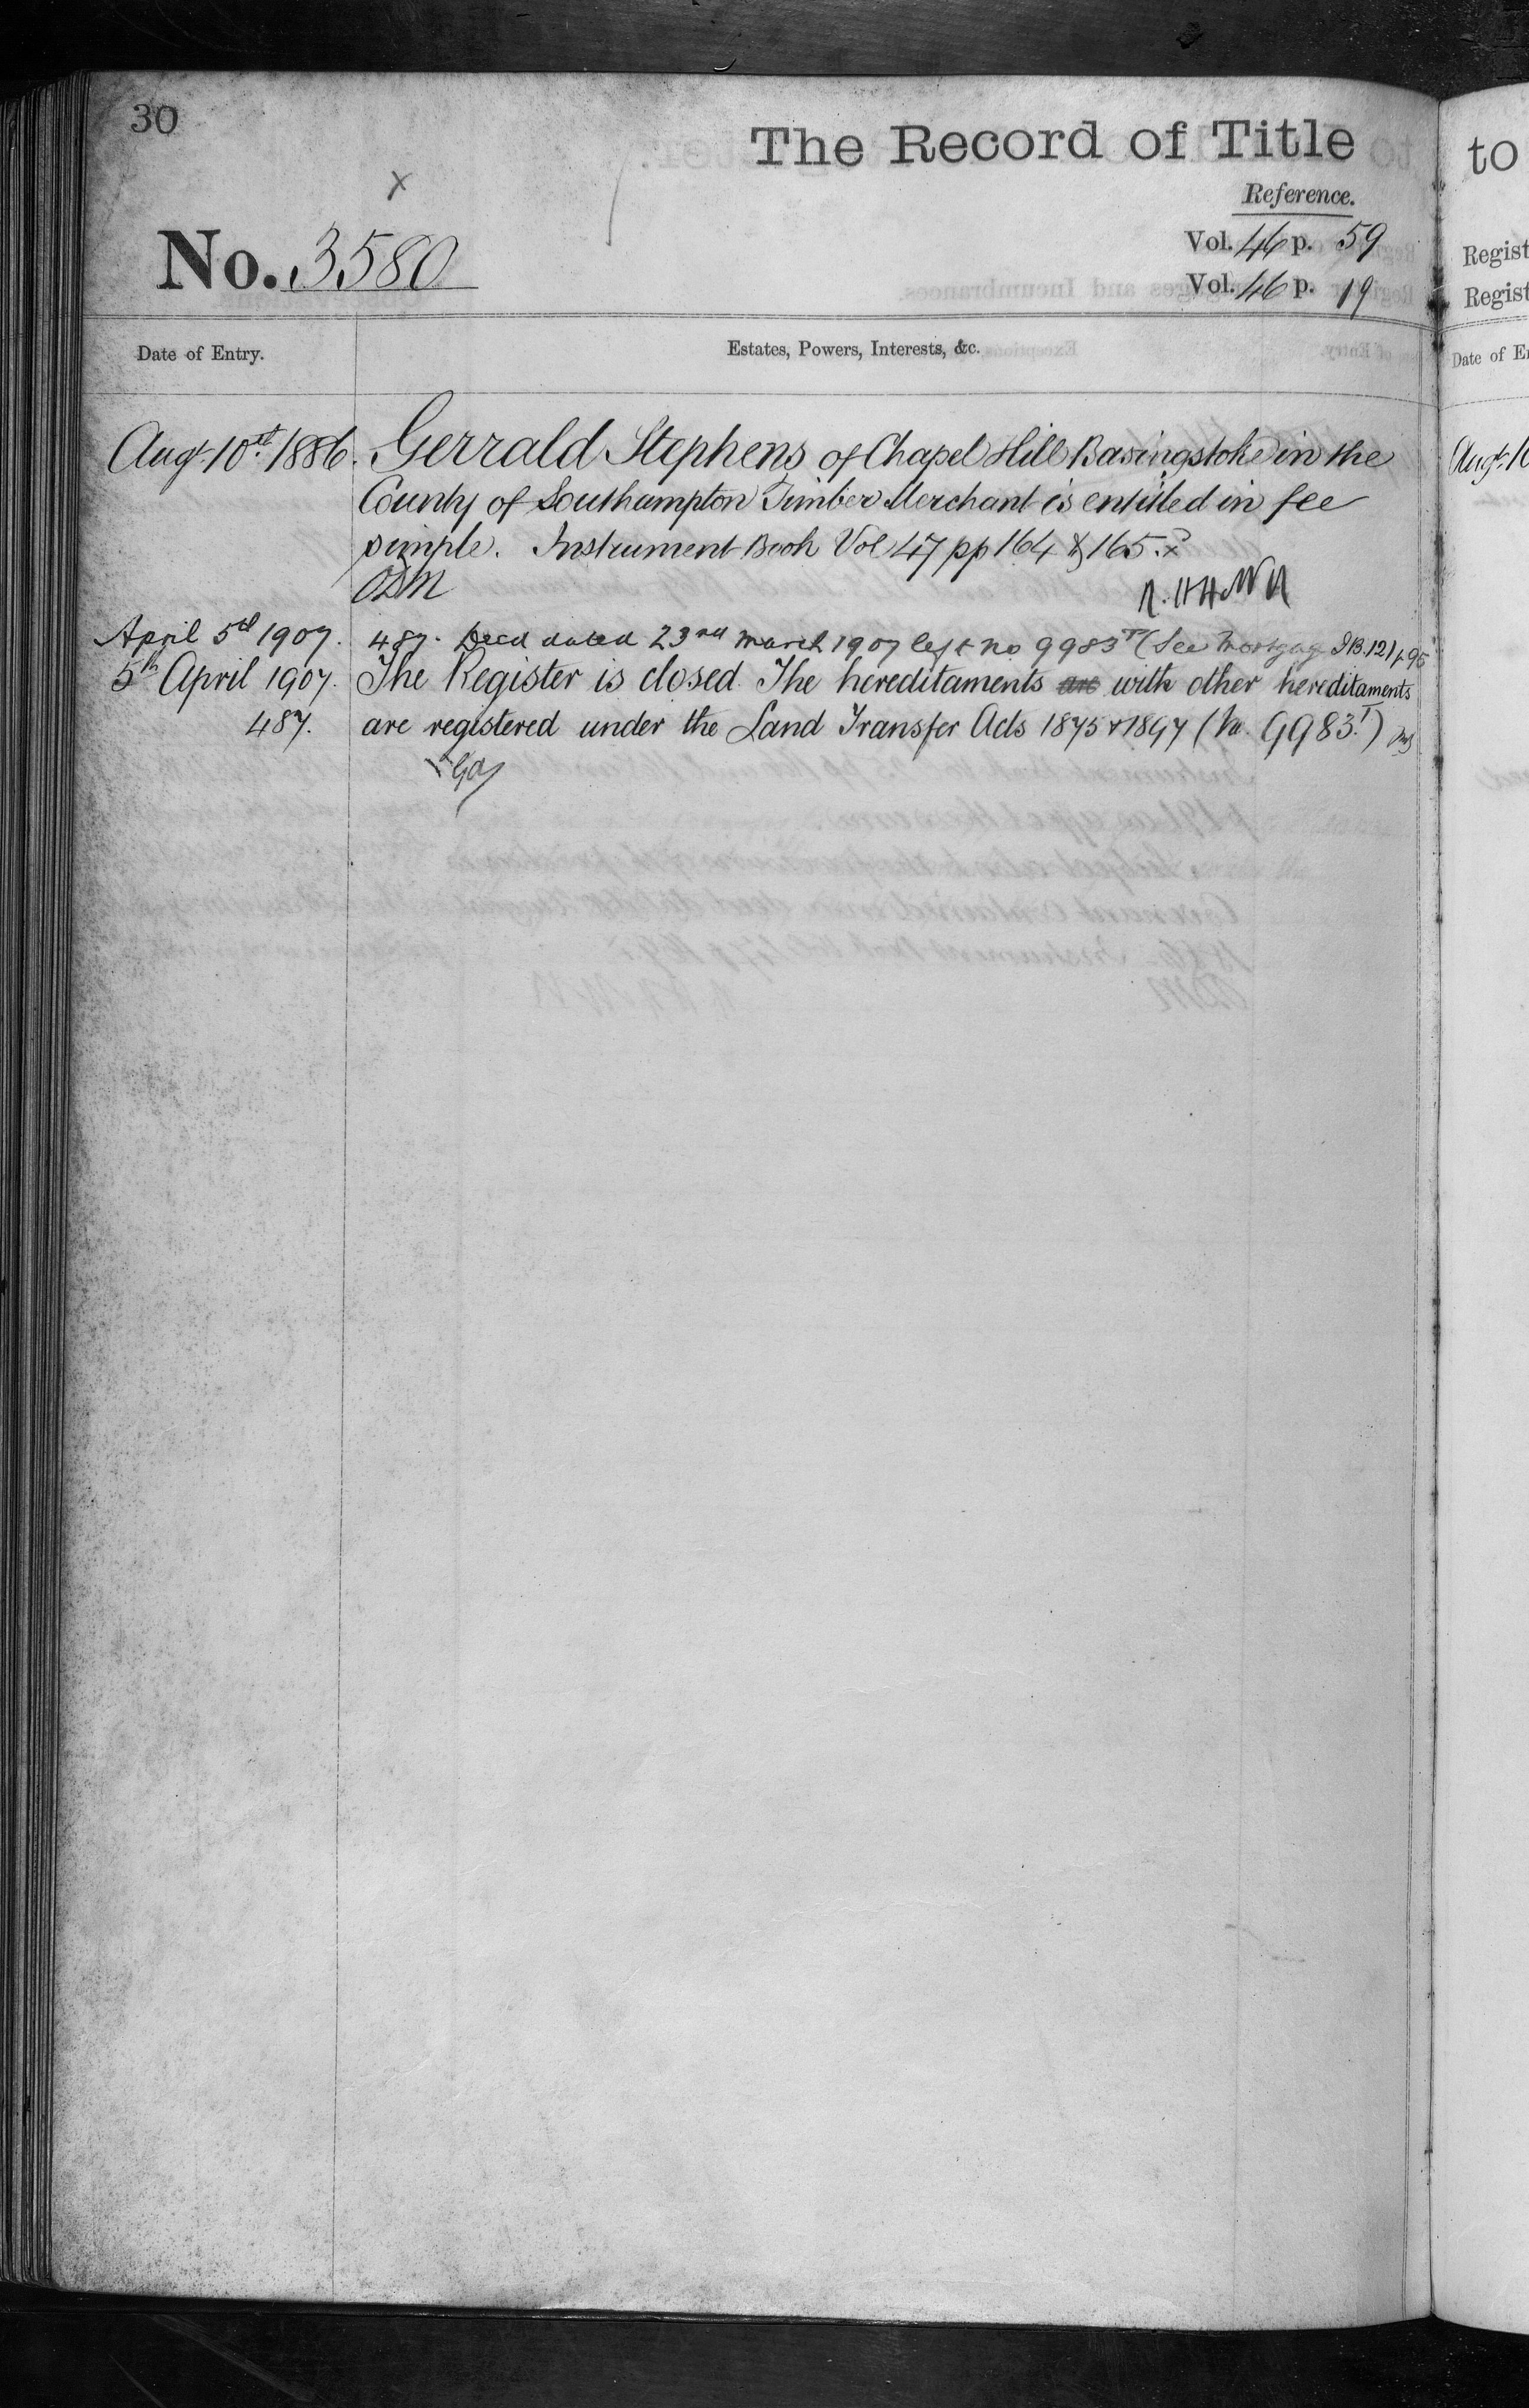 30
The Record of Title
Reference.
x
No. 3580
Vol. 46 p. 59
Vol. 46 p. 19
Date of Entry.
Estates, Powers, Interests, &c.
Augt. 10th. 1886. Gerrald Stephens of Chapel Hill Basingstoke in the
County of Southampton Timber Merchant is entitled in fee
simple. Instrument Book Vol 47 pp 164 & 165.
April 5th 1907. 487. Deed dated 23rd March 1907 left no 9983T (See Mortgage
5th April 1907. The Register is closed. The hereditaments are with other hereditaments
487. are registered under the Land Transfer Acts 1875 & 1897 (No. 9983T.)
to
Regist
Regist
Date of E
Augt. 10